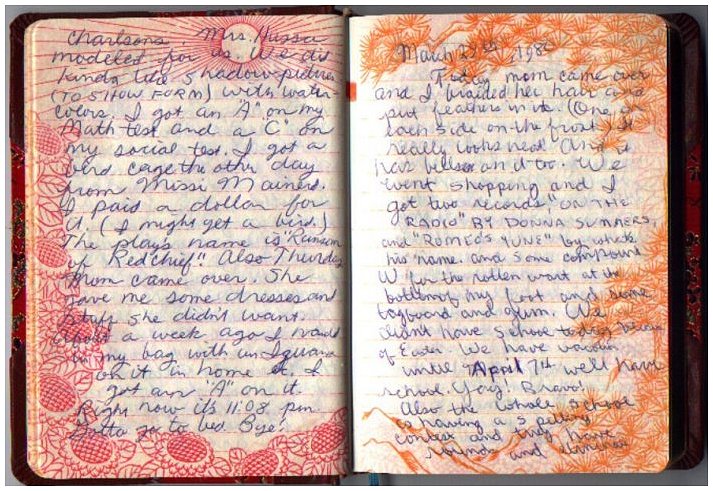 charlsons. Mrs. Hussa
modeled for us. We did
kinda like shadow pictures
(TO SHOW FORM) with water-
colors. I got an "A" on my
Math test and a "C" on
my social test. I got a
bird cage the other day
from Missi Mainerd.
I paid a dollar for
it. (I might get a bird.)
The plays name is "Ransom
of Red Chief". Also Thursday
mom came over. She
gave me some dresses and
stuff she didn't want.
About a week ago I made
my bag with un Iguana
on it in home ec. I
got an "A" on it.
Right now its 11:08 pm.
Gotta go to bed. Bye!
March 1980
Today mom came over
and I braided her hair and
put feathers in it. (One on
each side on the front) It
really looks neat. And it
has bells on it too. We
went shopping and I
got two records, "ON THE
RADIO" BY DONNA SUMMERS,
and "ROMEO'S TUNE" by whats
his name. and some compound
W for the rotten wart at the
bottom of my foot and some
tagboard and gum. We
didnt have school today because
of Easter. We have vacation
until April 7th we'll have
school. Yay! Bravo!
Also the whole school
is having a spelling
contest and they have
rounds and